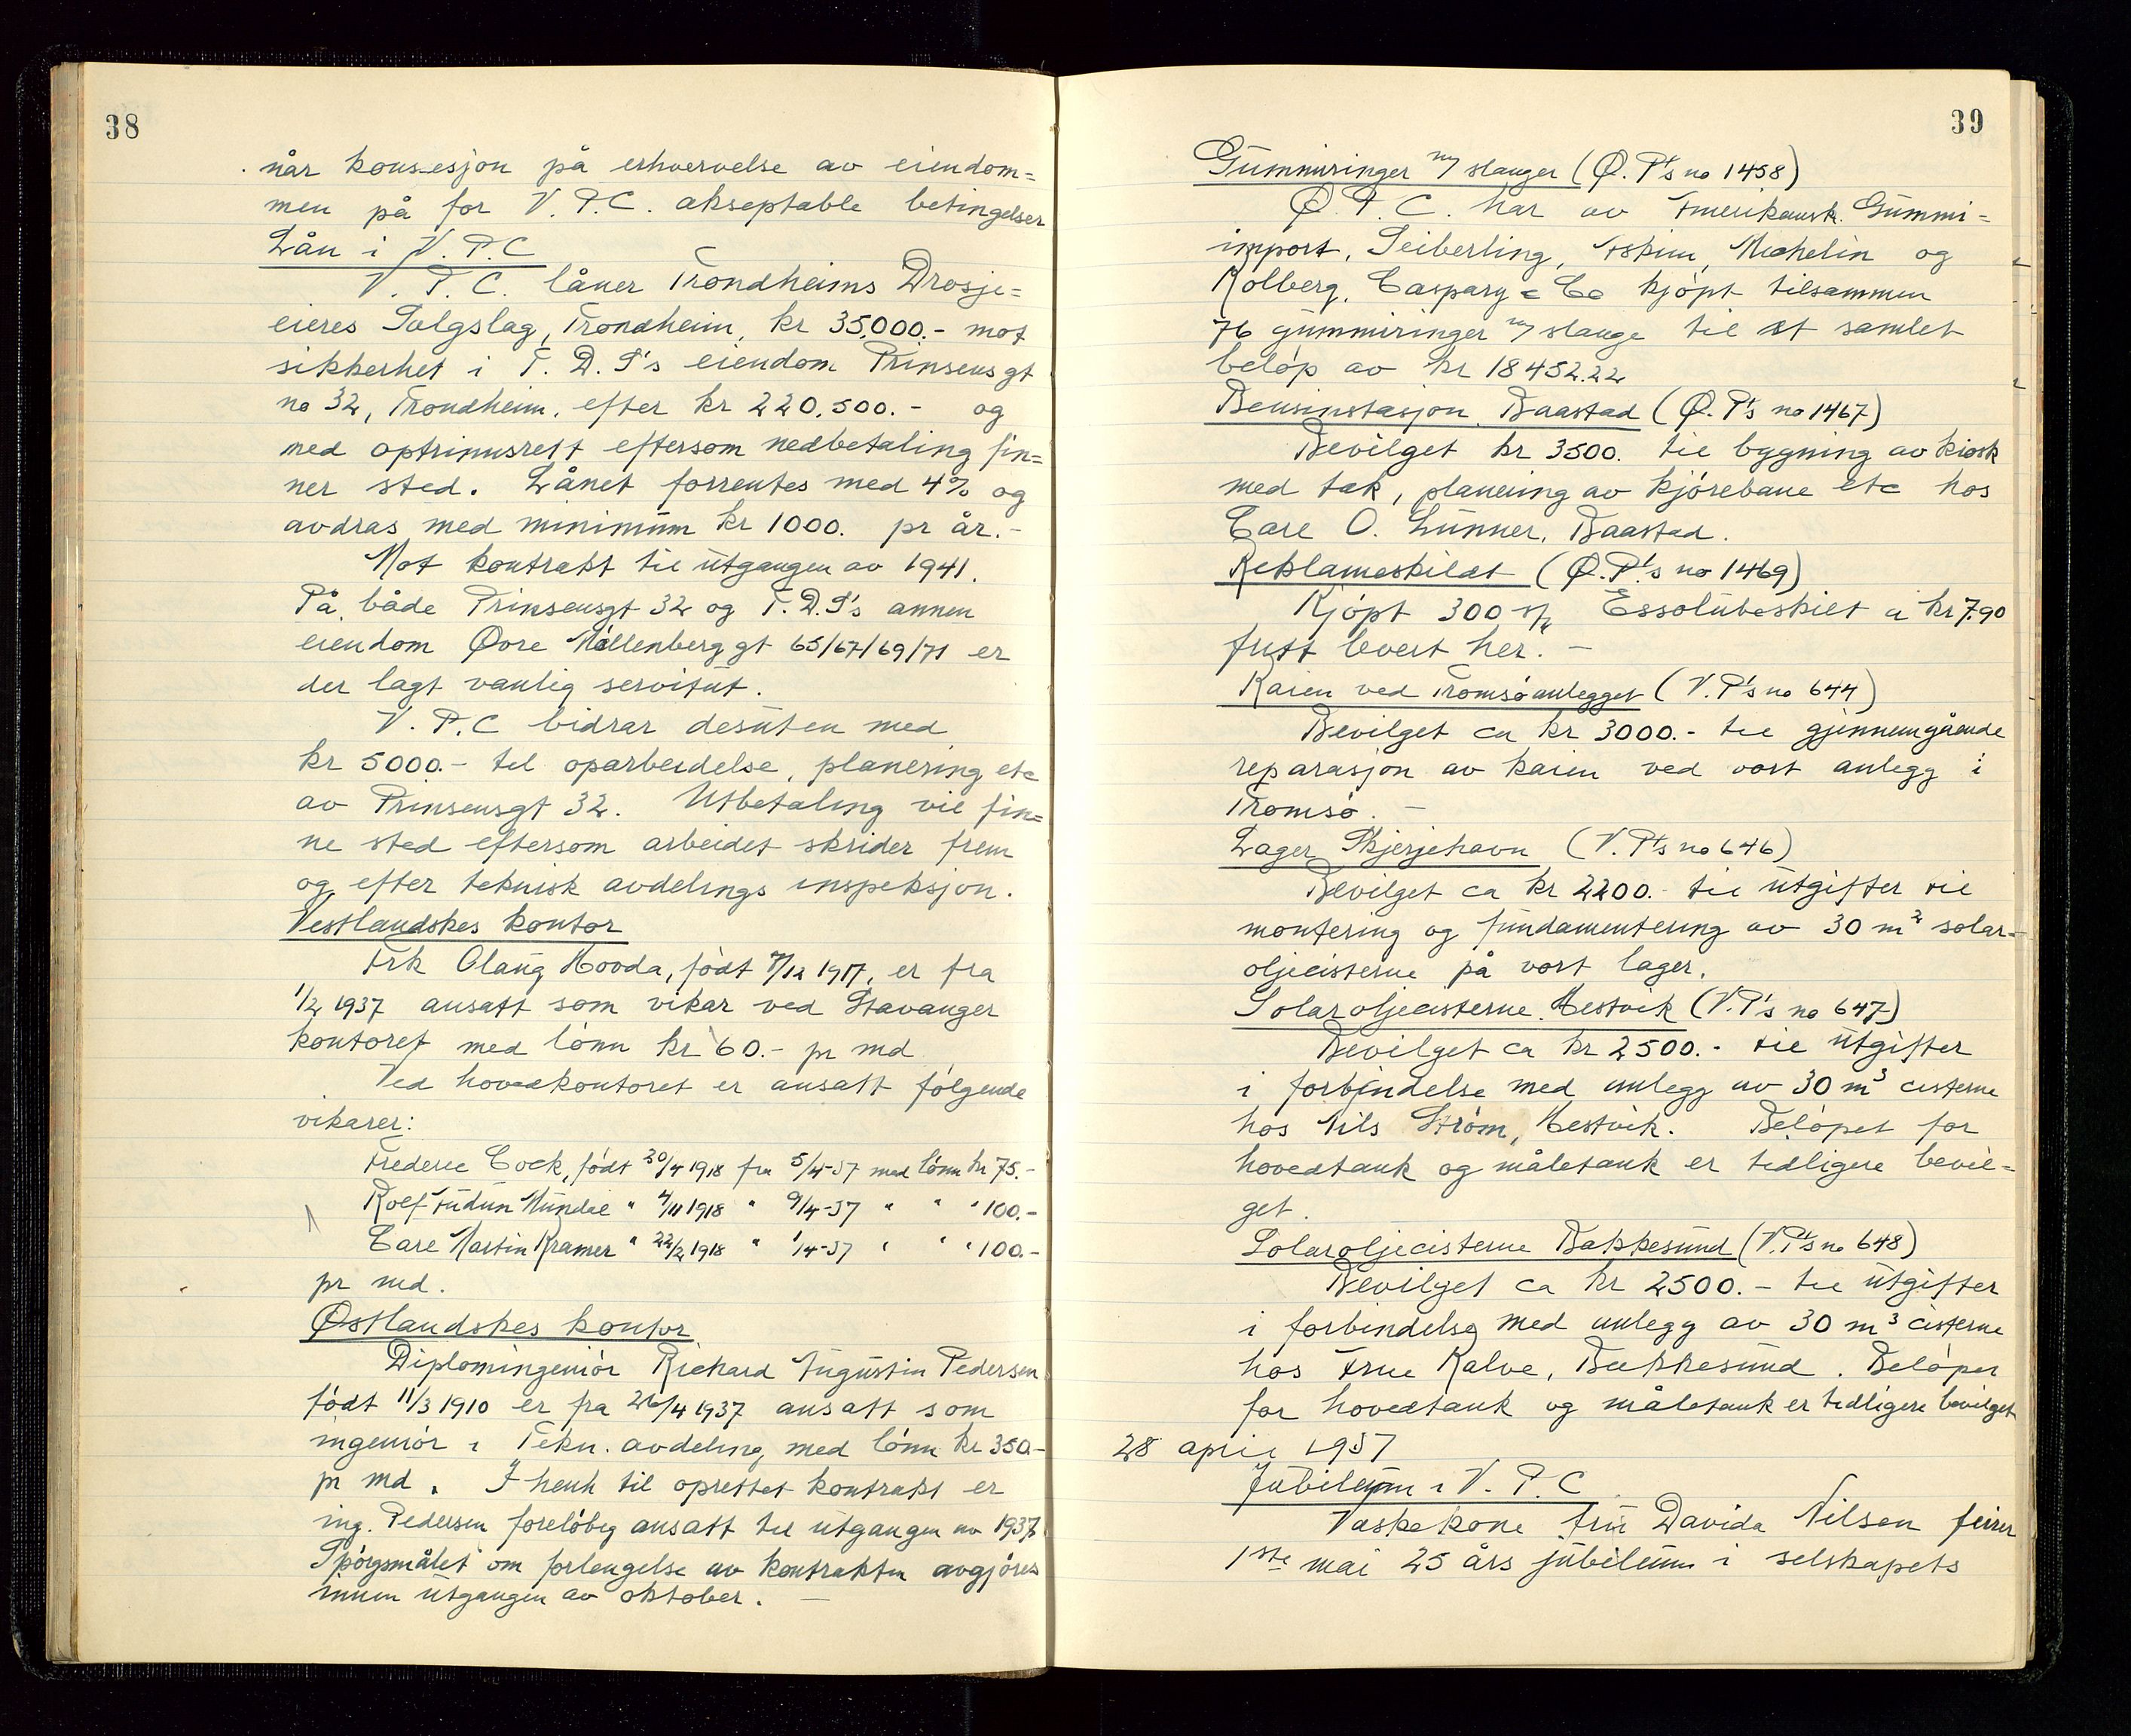 38
når konsesjon på erhvervelse av eiendom=
men på for V.P.C. akseptable betingelser
Lån i V.P.C
V.P.C. låner Trondheims Drosje=
eieres Salgslag, Trondheim, kr 35,000.- mot
sikkerhet i T.D.S's eiendom Prinsensgt
no 32, Trondheim, efter kr 220,500.- og
med optrinnsrett eftersom nedbetaling fin=
ner sted. Lånet forrentes med 4% og
avdras med minimum kr 1000. pr år.-
Mot kontrakt til utgangen av 1941.
På både Prinsensgt 32 og T.D.S's annen
eiendom Øvre Møllenberggt 65/67/69/71 er
der lagt vanlig servitut.
V.P.C bidrar desuten med
kr 5000.- til oparbeidelse, planering etc
av Prinsensgt 32. Utbetaling vil fin=
ne sted eftersom arbeidet skrider frem
og efter teknisk avdelings inspeksjon.
Vestlandskes kontor
Frk Olaug Hovda, født 7/12 1917, er fra
1/2 1937 ansatt som vikar ved Stavanger
kontoret med lønn kr 60.- pr md
Ved hovedkontoret er ansatt følgende
vikarer:
Frederic Cock, født 20/4 1918 fra 5/4-37 med lønn kr 75.-
Rolf Audun Mundal " 4/11 1918 " 9/4-37 " " " 100.-
Carl Martin Kramer " 22/2 1918 " 1/4-37 " " " 100.-
pr md.
Østlandskes kontor
Diplomingeniør Richard Augustin Pedersen
født 11/3 1910 er fra 26/4 1937 ansatt som
ingeniør i Tekn. avdeling, med lønn kr 350.-
pr md. I henh til oprettet kontrakt er
ing. Pedersen foreløbig ansatt til utgangen av 1937.
Spørgsmålet om forlengelse av kontrakten avgjøres
innen utgangen av oktober. -
39
Gummiringer m/ slanger (Ø.P's no 1458)
Ø.P.C. har av Amerikansk Gummi=
import, Seiberling, Askim, Michelin og
Kolberg, Caspary & Co kjøpt tilsammen
76 gummiringer m/ slange til et samlet
beløp av kr 18452.22
Bensinstasjon, Baastad (Ø.P's no 1467)
Bevilget kr 3500. til bygning av kiosk
med tak, planering av kjørebane etc hos
Carl O. Lunner, Baastad.
Reklameskildt (Ø.P's no 1469)
Kjøpt 300 st/k Essolubeskilt a kr 7.90
fritt levert her. -
Kaien ved Tromsøanlegget (V.P's no 644)
Bevilget ca kr 3000.- til gjennemgående
reparasjon av kaien ved vort anlegg i
Tromsø. -
Lager Skjerjehavn (V.P's no 646)
Bevilget ca kr 2200.- til utgifter til
montering og fundamentering av 30 m² solar=
oljecisterne på vort lager.
Solaroljecisterne, Hestvik (V.P's no 647)
Bevilget ca kr 2500.- til utgifter
i forbindelse med anlegg av 30 m³ cisterne
hos Nils Strøm, Hestvik. Beløpet for
hovedtank og måletank er tidligere bevil=
get.
Solaroljecisterne Bakkesund (V.P's no 648)
Bevilget ca kr 2500.- til utgifter
i forbindelse med anlegg av 30 m³ cisterne
hos Arne Kalve, Bakkesund. Beløper
for hovedtank og måletank er tidligere bevilget
28 april 1937
Jubileum i V.P.C
Vaskekone fru Davida Nilsen feirer
1ste mai 25 års jubileum i selskapets